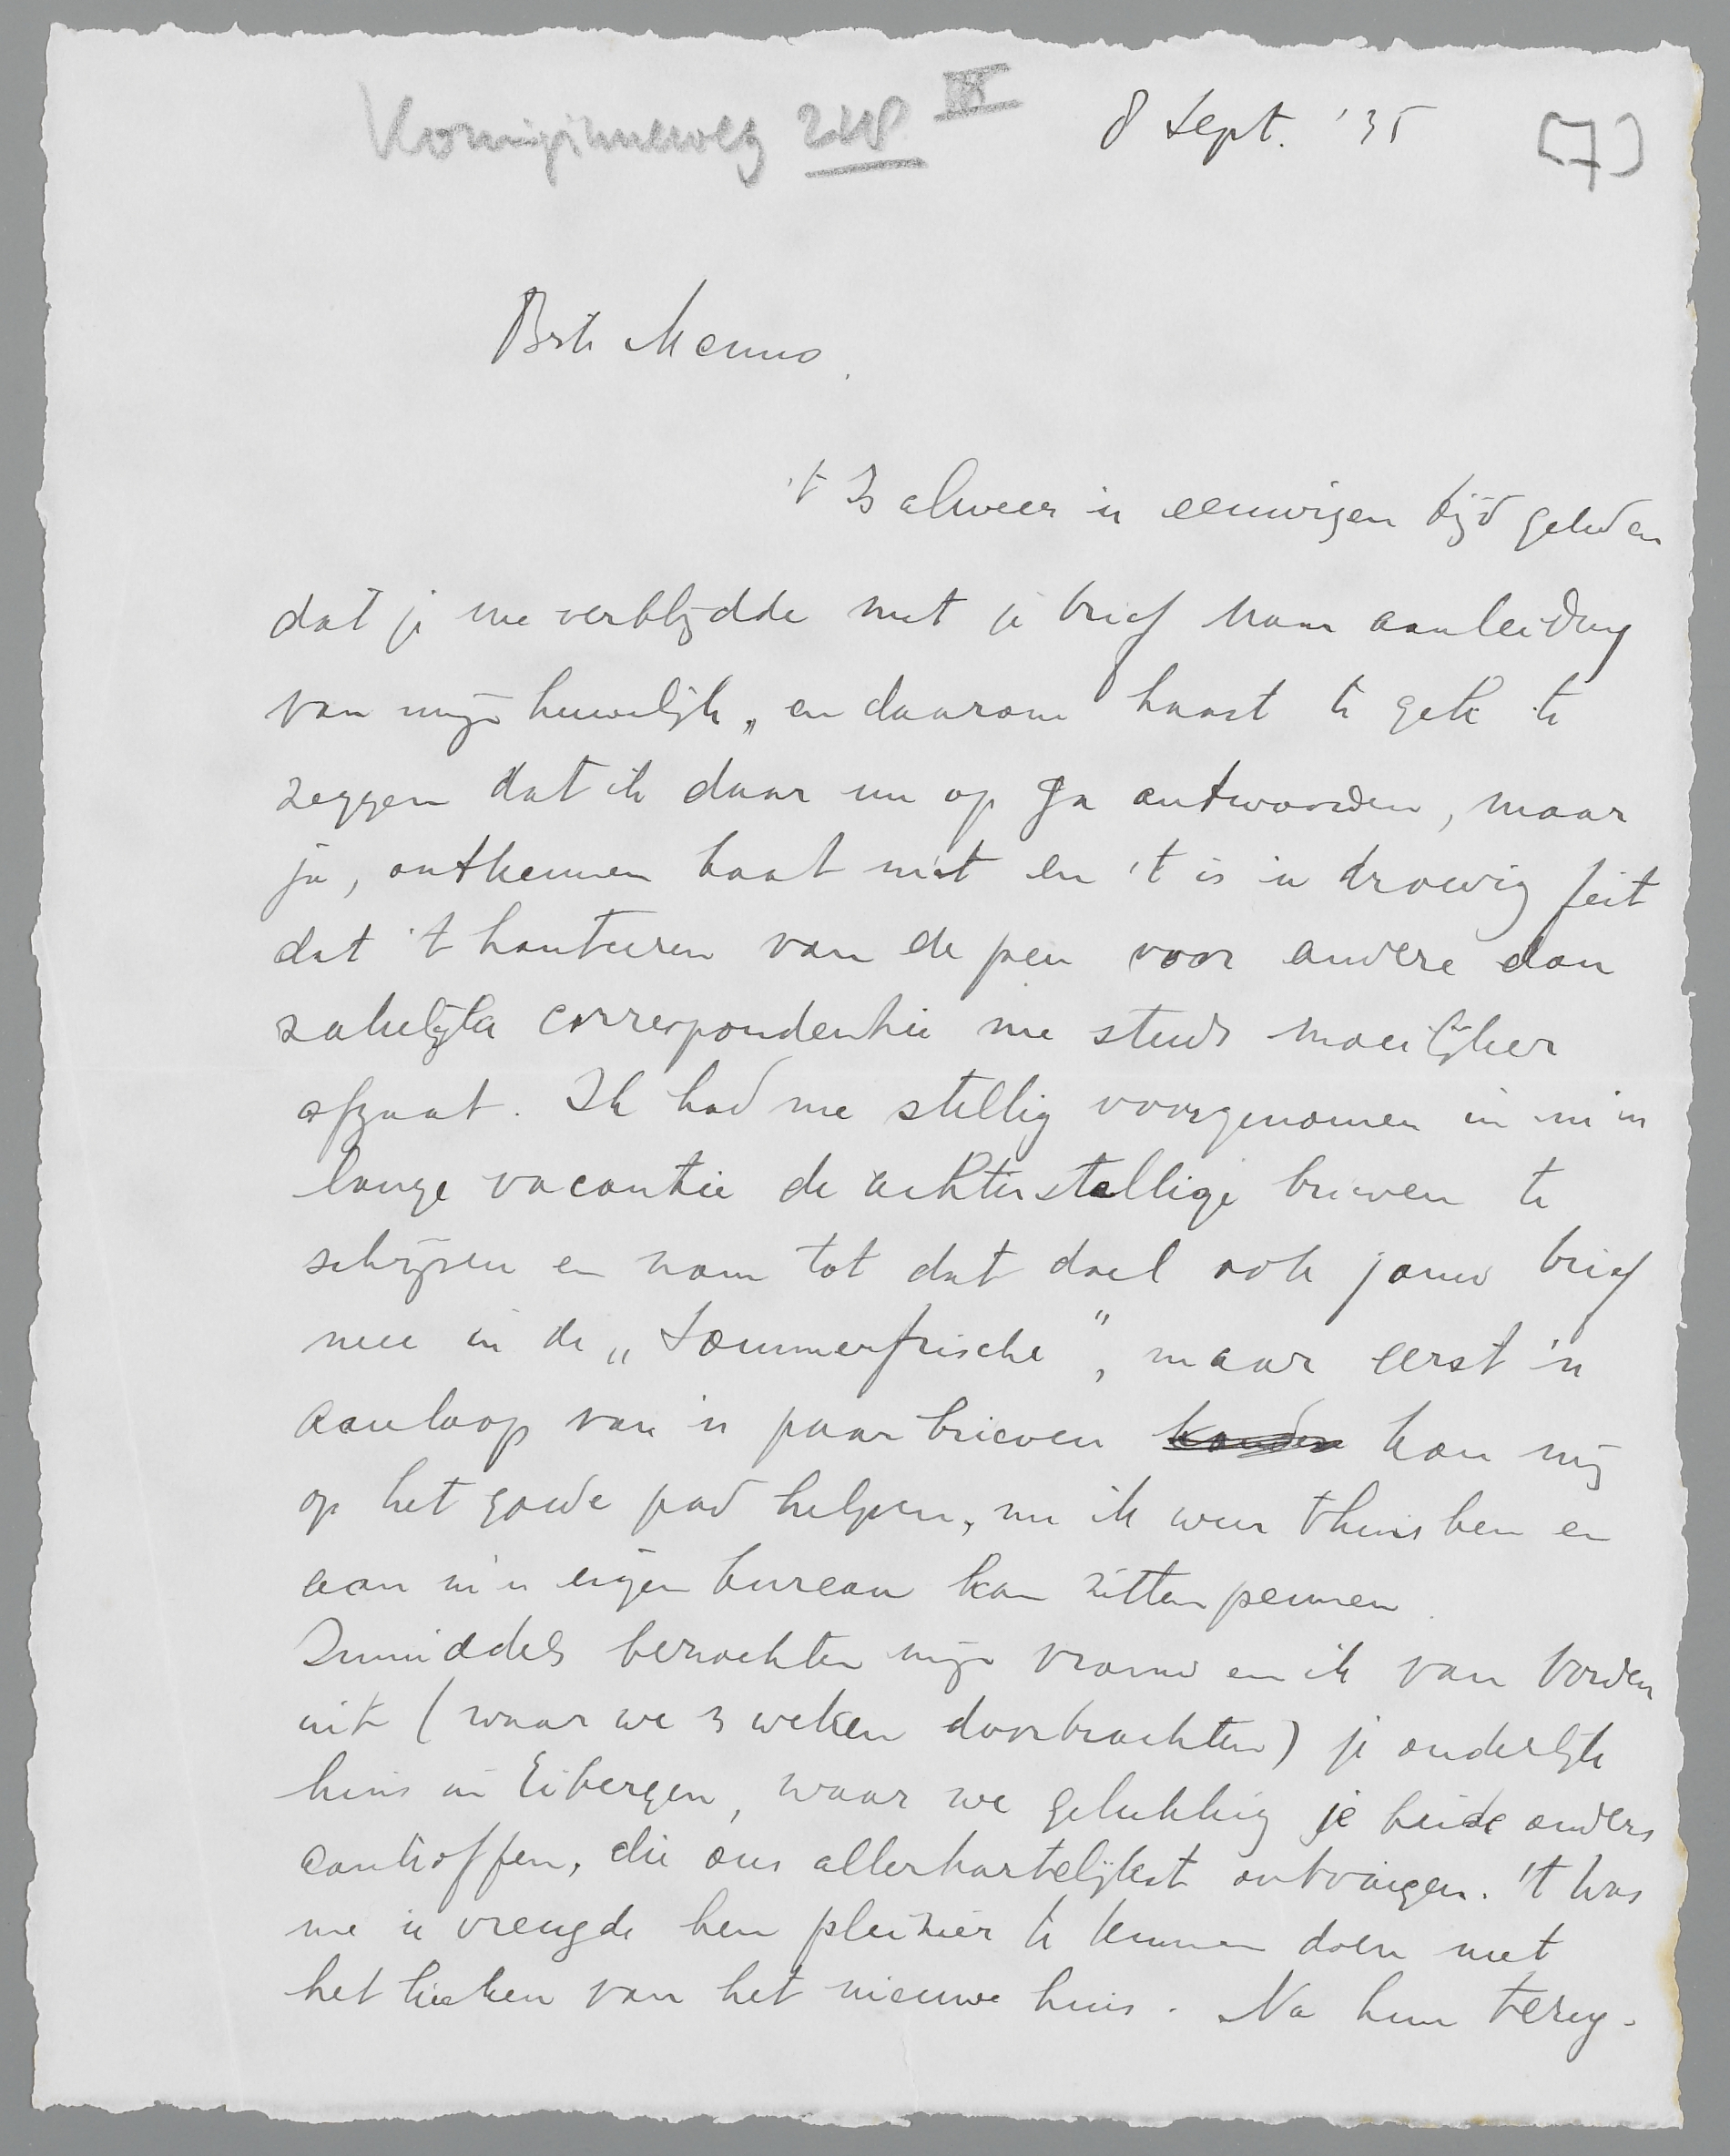 Koninginneweg 218 III
8 Sept. '35
[7]
Beste Menno,
't Is alweer 'n eeuwigen tijd geleden
dat je me verblijdde met je brief naar aanleiding
van mijn huwelijk, en daarom haast te gek te
zeggen dat ik daar nu op ga antwoorden, maar
ja, ontkennen baat niet en 't is 'n droevig feit
dat 't hanteeren van de pen voor andere dan
zakelijke correspondentie me steeds moeilijker
afgaat. Ik had me stellig voorgenomen in m'n
lange vacantie de achterstallige brieven te
schrijven en nam tot dat doel ook jouw brief
mee in de „Sommerfrische", maar eerst 'n
aanloop van 'n paar brieven konden kon mij
op het goede pad helpen, nu ik weer thuis ben en
aan m'n eigen bureau kan zitten pennen.
Inmiddels bezochten mijn vrouw en ik van Vorden
uit (waar we 3 weken doorbrachten) je ouderlijk
huis in Eibergen, waar we gelukkig je beide ouders
aantroffen, die ons allerhartelijkst ontvingen. 't Was
me 'n vreugde hen pleizier te kunnen doen met
het kieken van het nieuwe huis. Na hun terug-